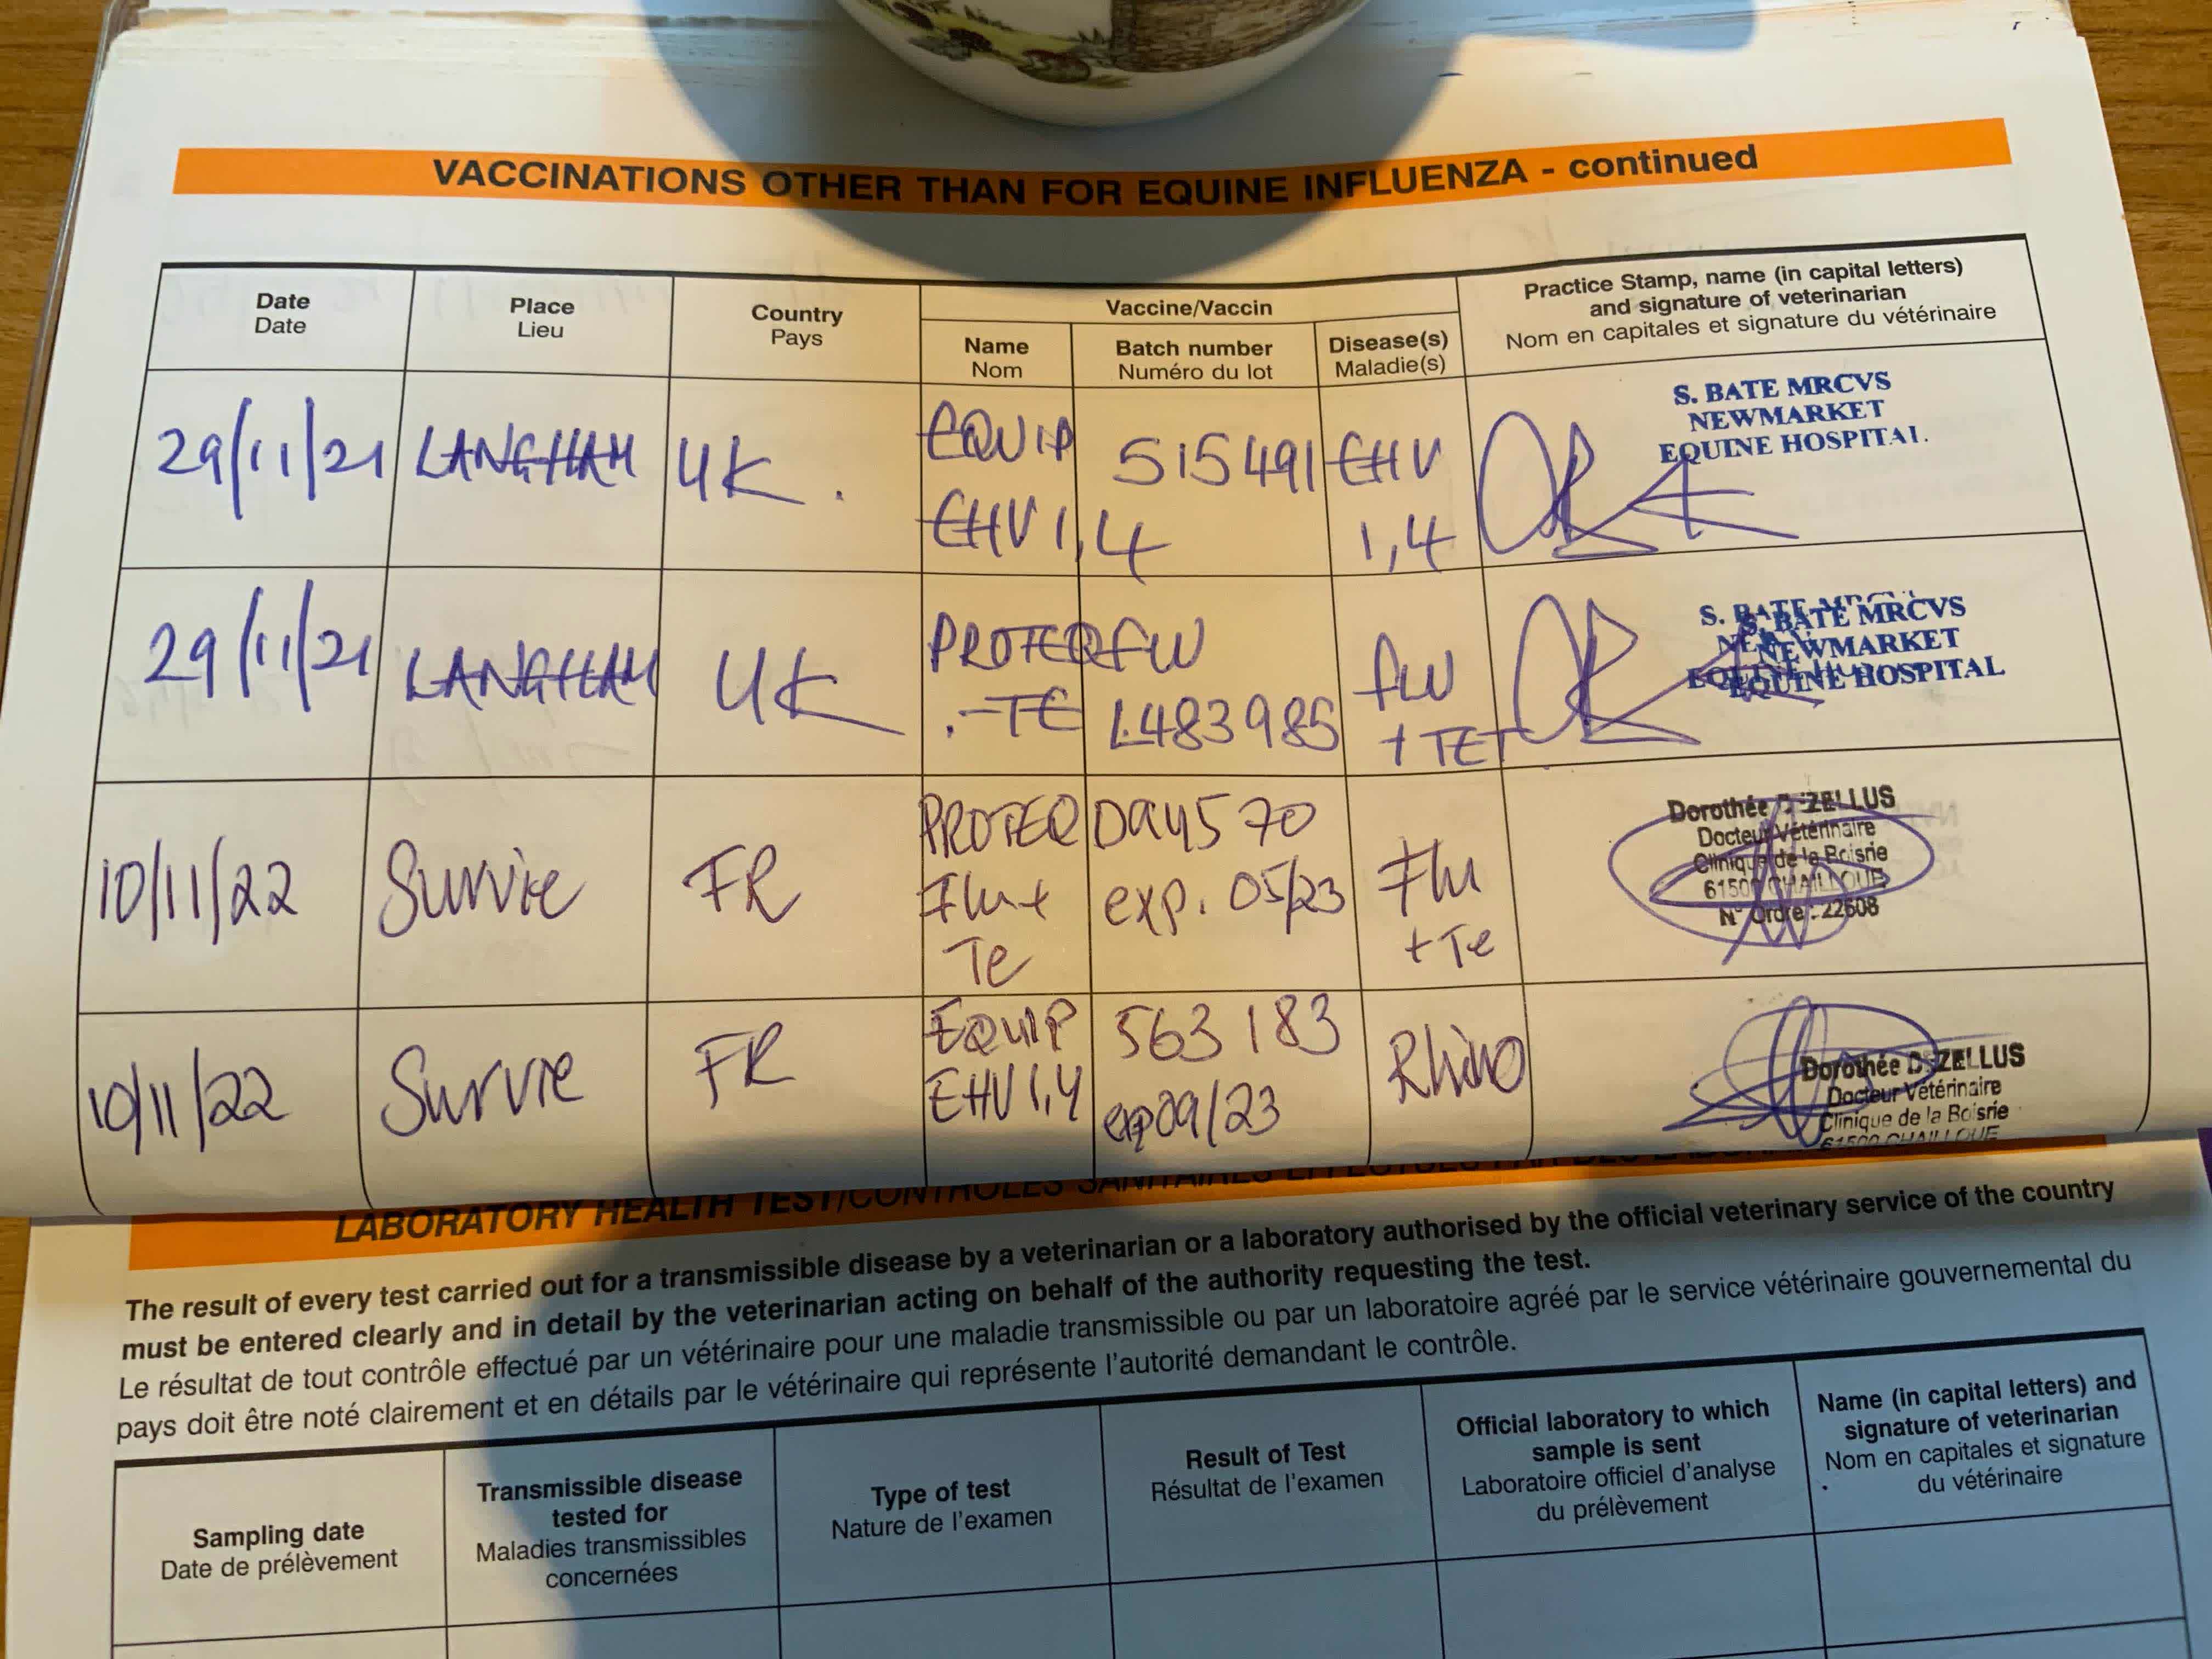 VACCINATIONS OTHER THAN FOR EQUINE INFLUENZA - continued
Date
Date
Place
Lieu
Country
Pays
Vaccine/Vaccin
Name
Nom
Batch number
Numéro du lot
Disease(s)
Maladie(s)
Practice Stamp, name (in capital letters)
and signature of veterinarian
Nom en capitales et signature du vétérinaire
29/11/21
LANGHAM
UK.
EQUIP
EHV 1,4
515491
EHV
1,4
S. BATE MRCVS
NEWMARKET
EQUINE HOSPITAL.
29/11/21
LANGHAM
UK
PROTEQ FLU
-TE
L483985
FLU
+ TET
S. BATE MRCVS
NEWMARKET
EQUINE HOSPITAL
10/11/22
Survie
FR
PROTEQ
Flu +
Te
exp. 05/23
Flu
+ Te
Dorothée D ZELLUS
Docteur Vétérinaire
Clinique de la Boisrie
61500 CHAILLOUE
N° Ordre : 22608
10/11/22
Survie
FR
EQUIP
EHV 1,4
563 183
exp 09/23
Rhino
Dorothée D ZELLUS
Docteur Vétérinaire
Clinique de la Boisrie
61500 CHAILLOUE
LABORATORY HEALTH TEST/CONTROLES SANITAIRES EFFECTUES PAR DES
The result of every test carried out for a transmissible disease by a veterinarian or a laboratory authorised by the official veterinary service of the country
must be entered clearly and in detail by the veterinarian acting on behalf of the authority requesting the test.
Le résultat de tout contrôle effectué par un vétérinaire pour une maladie transmissible ou par un laboratoire agréé par le service vétérinaire gouvernemental du
pays doit être noté clairement et en détails par le vétérinaire qui représente l'autorité demandant le contrôle.
Sampling date
Date de prélèvement
Transmissible disease
tested for
Maladies transmissibles
concernées
Type of test
Nature de l'examen
Result of Test
Résultat de l'examen
Official laboratory to which
sample is sent
Laboratoire officiel d'analyse
du prélèvement
Name (in capital letters) and
signature of veterinarian
Nom en capitales et signature
du vétérinaire